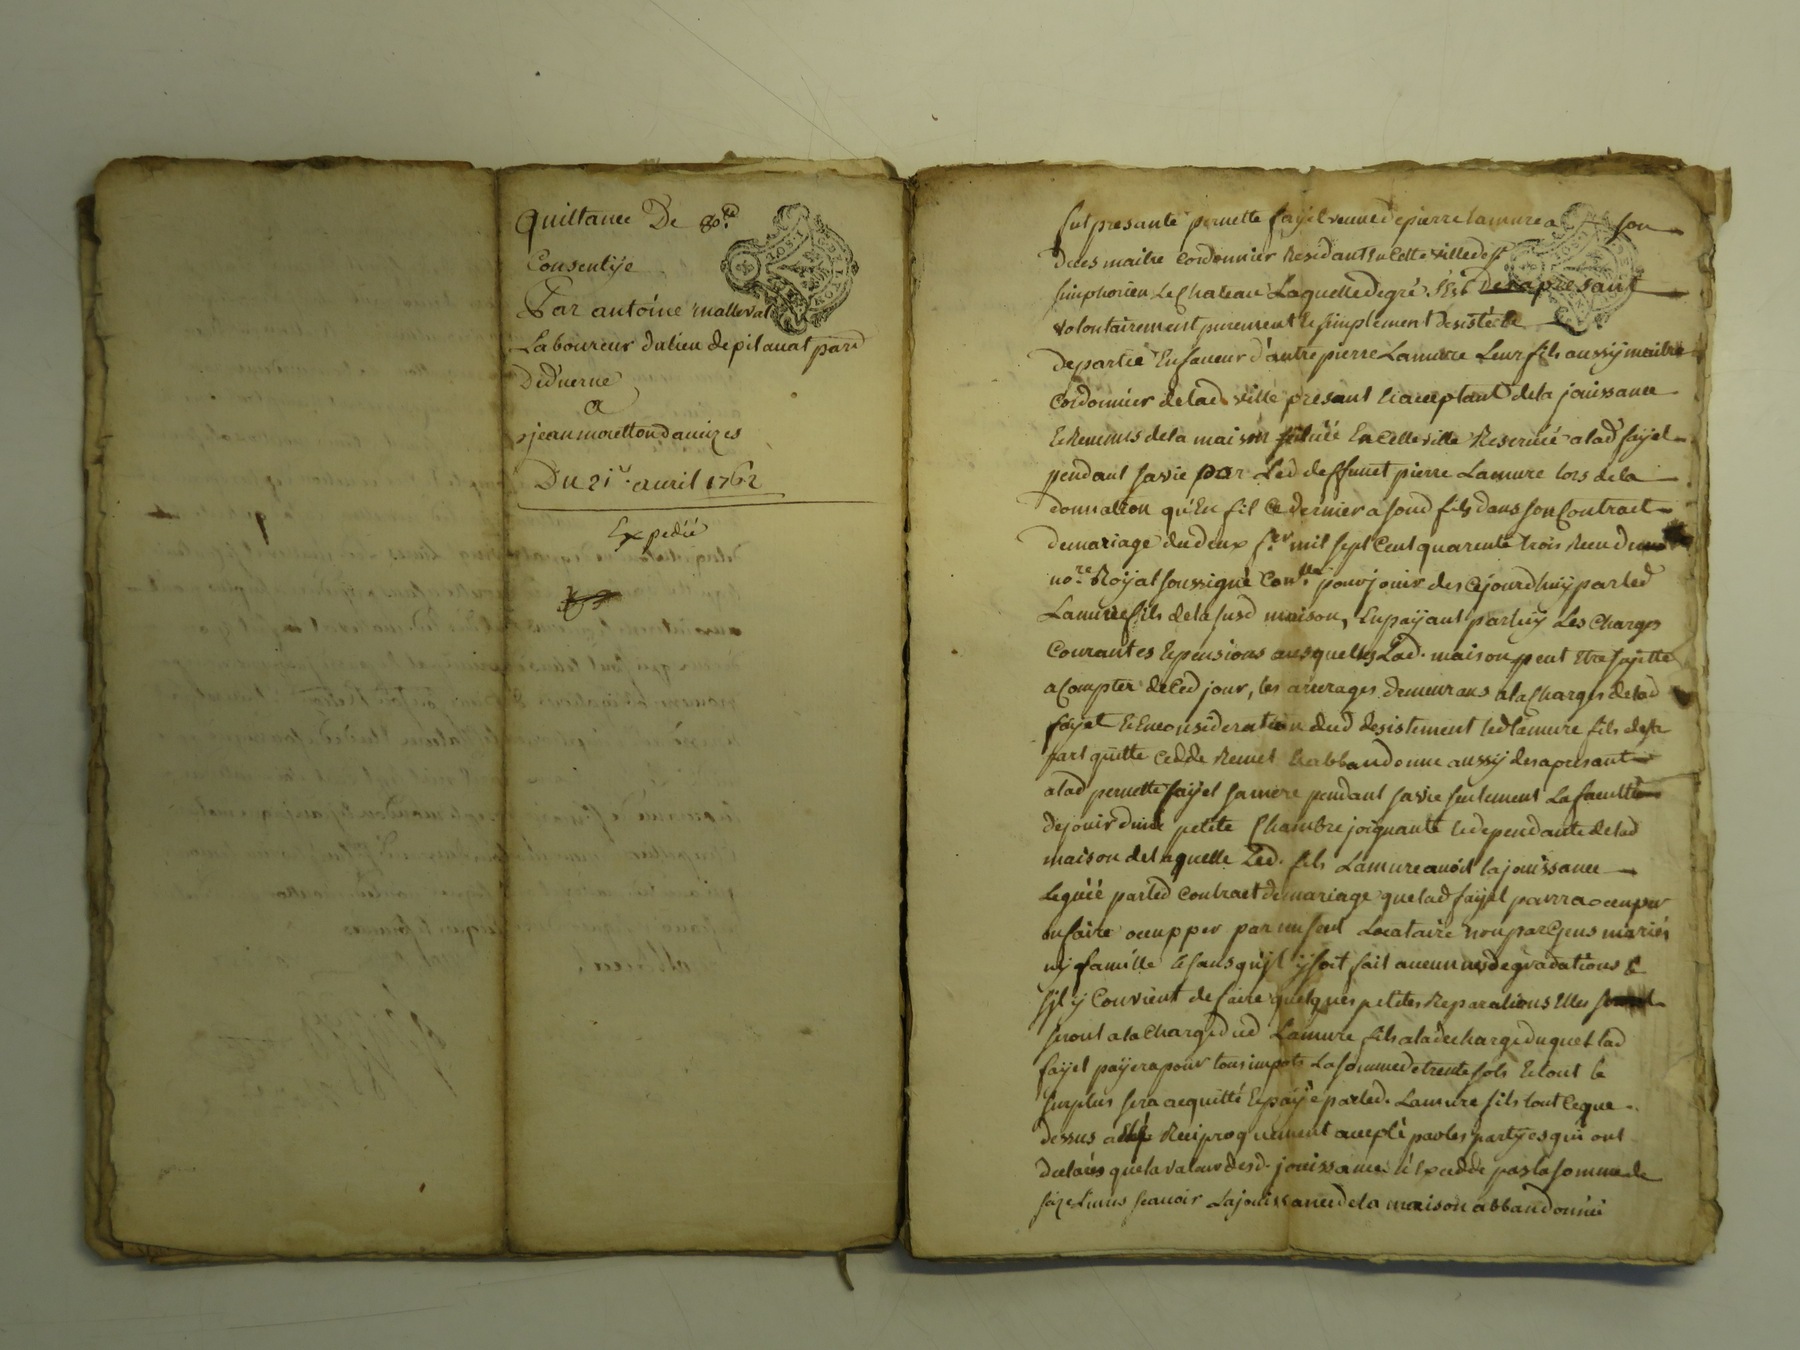 Quittance De 80#
Consentije
Par antoine malleval
Laboureur du lieu de pilauat par.
D'éduerne
a
jean moretton d'aueizes
Du 21.e auril 1762
Expediéé
fut presante pernette fayel veuue de pierre Lamure a son
deces maitre Cordonnier Residant En Cette ville de St
simphorien Le Chateau Laquelle de gré s'est des a presant
volontairement purement & simplement desistéé &
departie En faueur d'autre pierre Lamure Leur fils aussy maitre
Cordonnier de lad. ville presant & acceptant de la joüissance
& Reuenus de la maison situéé En Cette ville Reseruéé a lad fayel
pendant sa vie par Led deffunct pierre Lamure lors de la
donnation qu'En fit Ce dernier a soud fils dans son Contract
de mariage du deux mil sept Cent quarente trois Receu du
no.re Royal soussigné pour joüir des Cejourd'huy par led
Lamure fils de la susd maison, En payant par luy Les Charges
Courantes & pensions ausquelles Lad. maison peut Etre sujette
a Compter de Ced jour, les arrerages demeurans a la Charge de lad
fayel & En Consideration dud desistement led Lamure fils de sa
part quitte Cedde Remet & abbandonne aussy des a presant
a lad pernette fayel sa mere pendant sa vie seulement La faculté
de joüir d'une petite Chambre joignante & dependante de lad
maison de laquelle Led. fils Lamure auoit la joüissance
Leguéé par led Contract de mariage que lad fayel pourra occupper
ou faire occupper par un seul Locataire non par Gens mariés
ny famille & sans qu'il y soit fait aucunnes degradations &
s'il y Convient de faire quelques petites Reparations Elles
seront a la Charge dud Lamure fils a la decharge duquel lad
fayel payera pour tous impots La somme de trente sols & tout le
surplus sera acquitté & payé par led. Lamure fils tout Ce que
dessus a été Reciproquement accepté par les partyes qui ont
declarés que la valeur desd. joüissances n'Excedde pas la somme de
saize Liures scauoir La joüissance de la maison abbandonnéé